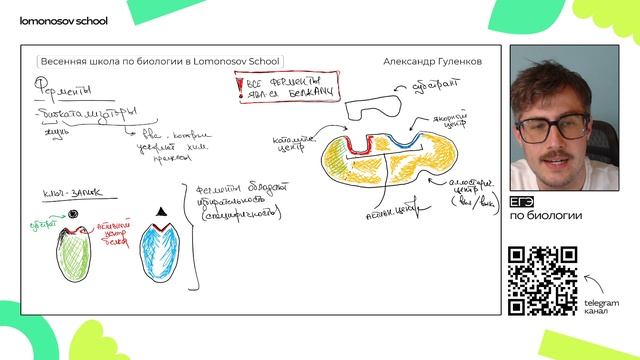 lomonosov school
Весенняя школа по биологии в Lomonosov School
Александр Гуленков
① Ферменты
- биокатализаторы
жизнь
в-ва, которые
ускоряют хим.
процессы
! ВСЕ ФЕРМЕНТЫ
ЯВЛ-СЯ БЕЛКАМИ
субстрат
якорный
центр
каталит.
центр
активн. центр
аллостерич.
центр
(вкл/выкл)
КЛЮЧ-ЗАМОК
субстрат
активный
центр
белка
Ферменты обладают
избирательностью
(специфичность)
ЕГЭ
по биологии
telegram
канал